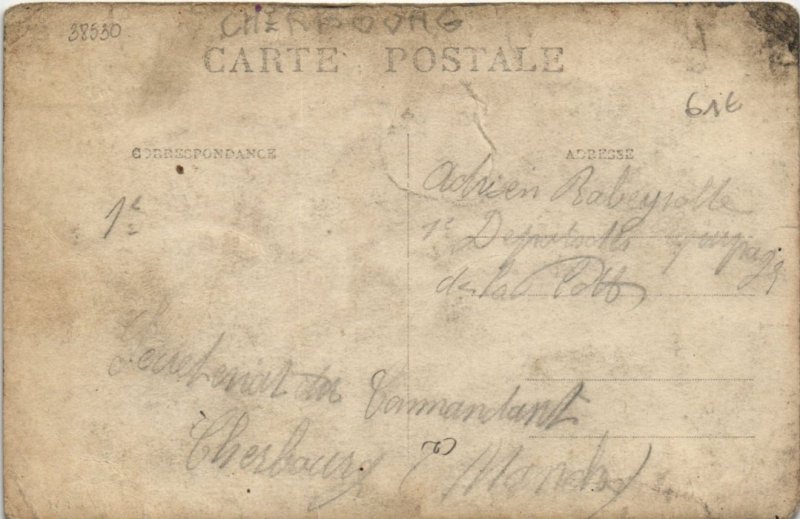 38530
CHERBOURG
CARTE POSTALE
61€
CORRESPONDANCE
ADRESSE
Adrien Rabeyrolle
1e Depot des equipages
de la
1e
Secretariat du Commandant
Cherbourg Manche